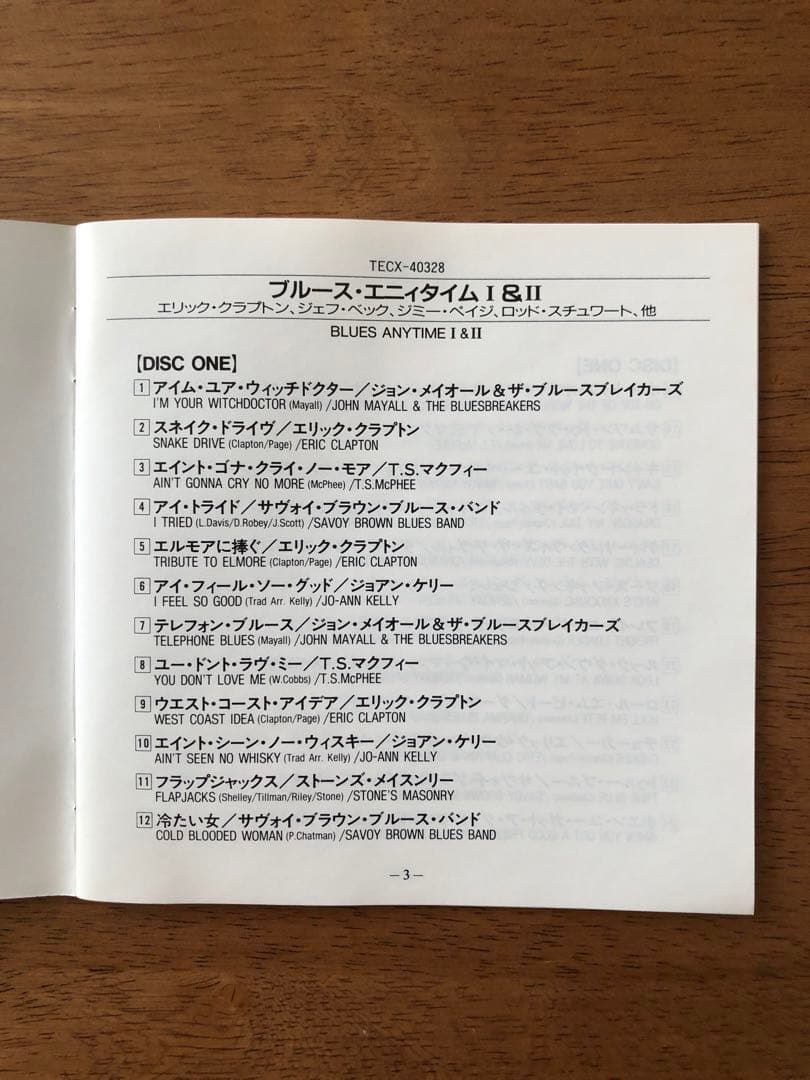 TECX-40328
ブルース・エニィタイムⅠ&Ⅱ
エリック・クラプトン、ジェフ・ベック、ジミー・ペイジ、ロッド・スチュワート、他
BLUES ANYTIME Ⅰ&Ⅱ
【DISC ONE】
1 アイム・ユア・ウィッチドクター/ジョン・メイオール&ザ・ブルースブレイカーズ
I'M YOUR WITCHDOCTOR (Mayall) /JOHN MAYALL & THE BLUESBREAKERS
2 スネイク・ドライヴ/エリック・クラプトン
SNAKE DRIVE (Clapton/Page) /ERIC CLAPTON
3 エイント・ゴナ・クライ・ノー・モア/T.S.マクフィー
AIN'T GONNA CRY NO MORE (McPhee) /T.S.McPHEE
4 アイ・トライド/サヴォイ・ブラウン・ブルース・バンド
I TRIED (L.Davis/D.Robey/J.Scott) /SAVOY BROWN BLUES BAND
5 エルモアに捧ぐ/エリック・クラプトン
TRIBUTE TO ELMORE (Clapton/Page) /ERIC CLAPTON
6 アイ・フィール・ソー・グッド/ジョアン・ケリー
I FEEL SO GOOD (Trad Arr. Kelly) /JO-ANN KELLY
7 テレフォン・ブルース/ジョン・メイオール&ザ・ブルースブレイカーズ
TELEPHONE BLUES (Mayall) /JOHN MAYALL & THE BLUESBREAKERS
8 ユー・ドント・ラヴ・ミー/T.S.マクフィー
YOU DON'T LOVE ME (W.Cobbs) /T.S.McPHEE
9 ウエスト・コースト・アイデア/エリック・クラプトン
WEST COAST IDEA (Clapton/Page) /ERIC CLAPTON
10 エイント・シーン・ノー・ウィスキー/ジョアン・ケリー
AIN'T SEEN NO WHISKY (Trad Arr. Kelly) /JO-ANN KELLY
11 フラップジャックス/ストーンズ・メイスンリー
FLAPJACKS (Shelley/Tillman/Riley/Stone) /STONE'S MASONRY
12 冷たい女/サヴォイ・ブラウン・ブルース・バンド
COLD BLOODED WOMAN (P.Chatman) /SAVOY BROWN BLUES BAND
—3—